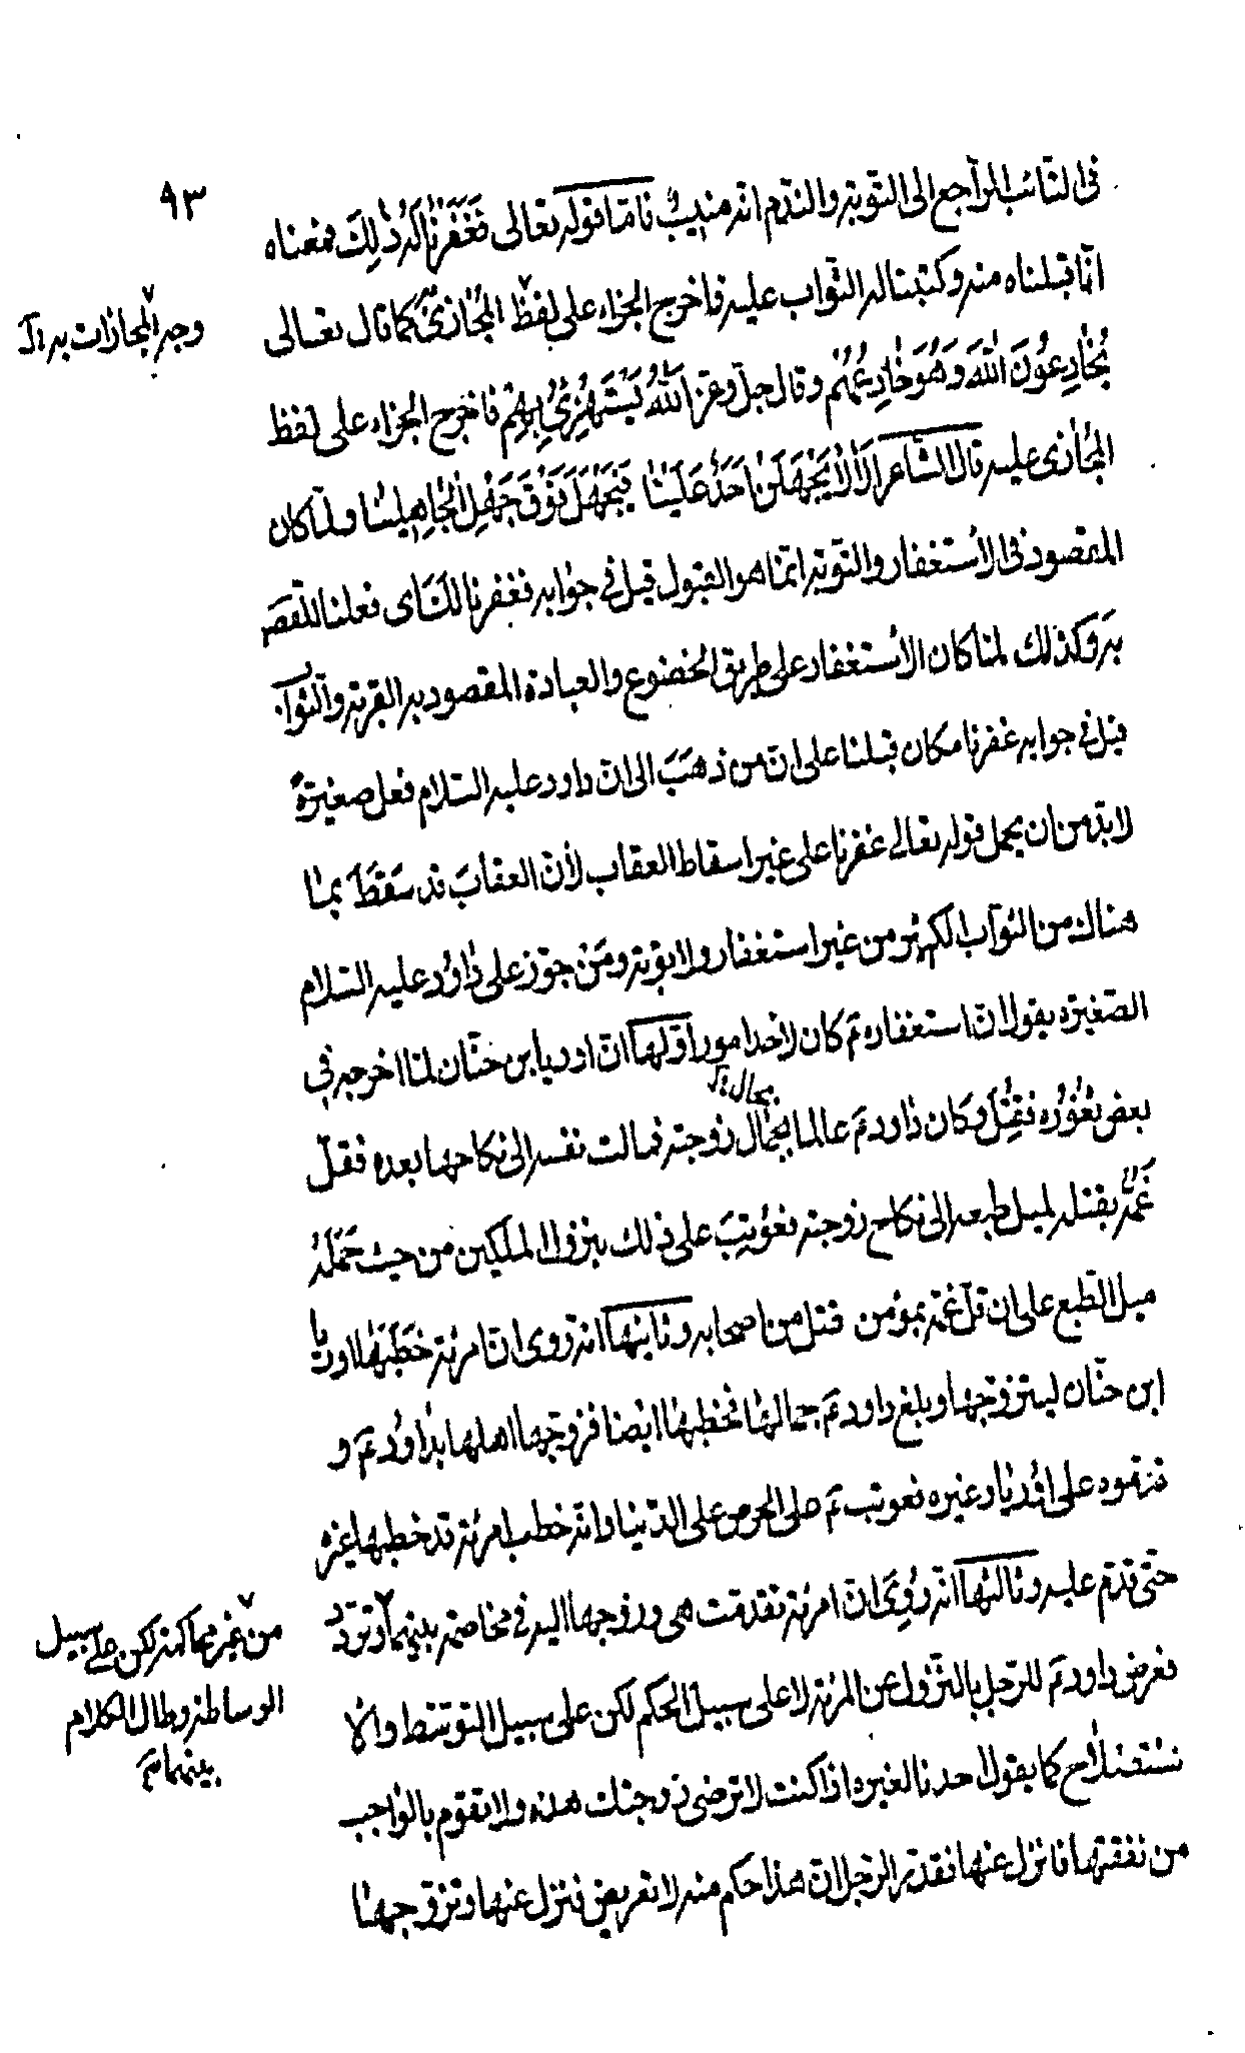 ٩٣
فى التائب الراجع الى التوبة والندم انه منيب فامّا قوله تعالى فَغَفَرْنٰا لَهُ ذٰلِكَ فمعناه
انّا قبلناه منه وكتبنا له الثواب عليه فاخرج الجزاء على لفظ المجازىٰ كما قال تعالى
وجه المجازات به
يُخٰادِعُونَ اللّٰهَ وَهُوَ خٰادِعُهُمْ وقال جلّ وعز اَللّٰهُ يَسْتَهْزِئُ بِهِمْ فاخرج الجزاء على لفظ
المجٰازى عليه قال الشاعر اَلاٰ لاٰ يَجْهَلَنْ اَحَدٌ عَلَيْنٰا فَنَجْهَلَ فَوْقَ جَهْلِ الْجٰاهِلينٰا ولمّا كان
المقصود فى الاستغفار والتوبة انّما هو القبول قيل فى جوابه فغفرنا لك اى فعلنا المقصود
به وكذلك لمّا كان الاستغفار على طريق الخضوع والعبادة المقصود به القربة والثواب
قيل فى جوابه غفرنا مكان قبلنا على انّ من ذهَبَ الى انّ داود عليه السّلام فعل صغيرةً
لا بدّ من ان يحمل قوله تعالى غفرنا على غير اسقاط العقاب لأنّ العقابَ قد سَقَطَ بمٰا
هناك من الثواب الكثير من غير استغفار ولا توبة ومَنْ جوّز على دٰاوُد عليه السّلام
الصّغيرة يقول انّ استغفاره عَ كان لأحد امور اوّلها انّ اوريا بن حنّان لمّا اخرجه فى
بعض ثغُورُه فقُتِلَ وكان دٰاود عَ عالما بجمٰال زوجته فمالت نفسه الى نكاحها بعده فقلّ
بحال
غَمُّهُ بقتله لميل طبعه الى نكاح زوجته فعُوتِبَ على ذلك بنزول الملكين من حيث حَمَلَهُ
ميل الطّبع على ان قلّ غمّه بمؤمن قتل من اصحابه وثانيها انّه روى انّ امرئة خَطَبَهٰا اوريٰا
ابن حنّان ليتزوّجها وبلغ داود عَ جمالهٰا فخطبهٰا ايضا فزوّجها اهلها بدٰاوُد عَ و
قدّموه على اوُريٰا وغيره فعوتب عَ على الحرص على الدّنيا وانّه خطب امرئة قد خطبها غيره
حتّى قدّم عليه وثالثها انّه رُوِىَ انّ امرئة تقدمت هى وزوجها اليه فى مخاصمة بينهمٰا وتردّد
من غير محاكمة لكن على سبيل
الوساطة وطال الكلام
بينهما
فعرض داود عَ للرّجل بالنّزول عن المرئة لا على سبيل الحكم لكن على سبيل التوسّط والا
ستصلٰاح كما يقول احدنا لغيره اذا كنت لا ترضى زوجتك هذه ولا تقوم بالوٰاجب
من نفقتها فانزل عنها فقدّر الرّجل انّ هذا حكم منه لا تعريض فنزل عنها وتزوّجهٰا